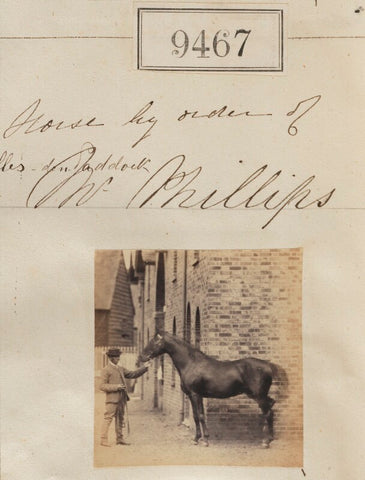 9467
Horse by order of
Paddock
Mr Phillips